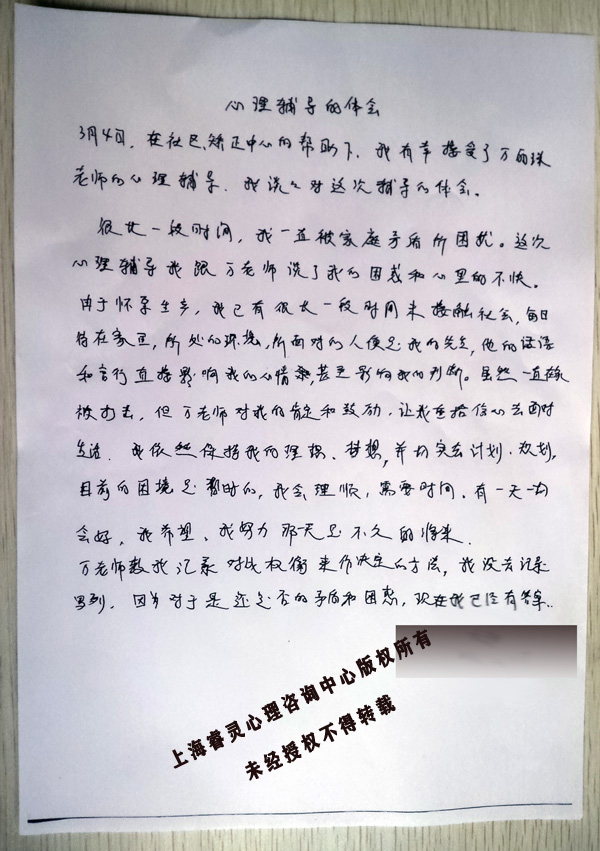 心理辅导的体会
3月4日，在社区矫正中心的帮助下，我有幸接受了万丽珠
老师的心理辅导，我谈谈对这次辅导的体会。
很长一段时间，我一直被家庭矛盾所困扰。这次
心理辅导我跟万老师谈了我的困惑和心里的不快。
由于怀孕生产，我已有很长一段时间未接触社会，每日
待在家里，所处的环境，所面对的人便是我的先生，他的话语
和言行直接影响我的心情，甚至影响我的判断。虽然一直在
被打击，但万老师对我的肯定和鼓励，让我重拾信心去面对
生活。我依然保持我的理想、梦想，并切实去计划、规划，
目前的困境是暂时的，我会理顺，需要时间，有一天一切
会好，我希望、我努力那天是不久的将来。
万老师教我记录对比权衡来作决定的方法，我没去记录
罗列，因为对于是还是否的矛盾和困惑，现在我已经有答案..
上海睿灵心理咨询中心版权所有
未经授权不得转载